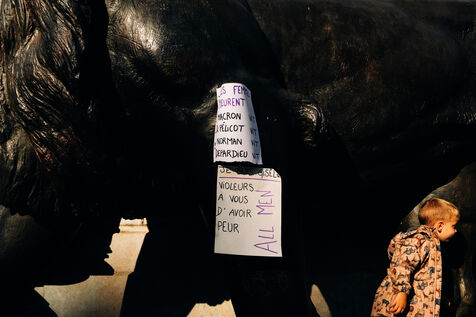 LES FEMMES
MEURENT
MACRON VIT
PÉLICOT VIT
NORMAN VIT
DEPARDIEU VIT
VIOLEURS
À VOUS
D'AVOIR
PEUR
ALL MEN